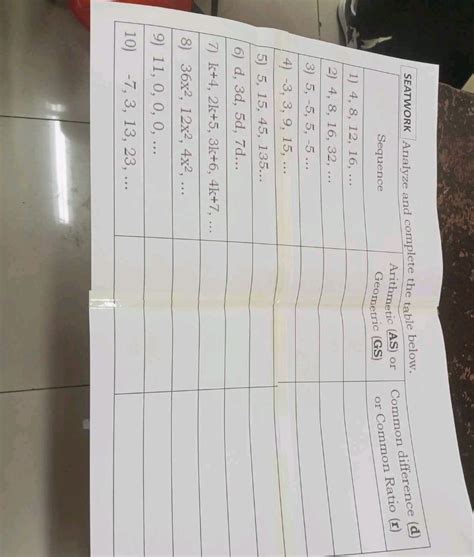 SEATWORK Analyze and complete the table below.
Sequence
Arithmetic (AS) or
Geometric (GS)
Common difference (d)
or Common Ratio (r)
1) 4, 8, 12, 16, ...
2) 4, 8, 16, 32, ...
3) 5, -5, 5, -5 ...
4) -3, 3, 9, 15, ...
5) 5, 15, 45, 135...
6) d, 3d, 5d, 7d...
7) k+4, 2k+5, 3k+6, 4k+7, ...
8) 36x², 12x², 4x², ...
9) 11, 0, 0, 0, ...
10) -7, 3, 13, 23, ...